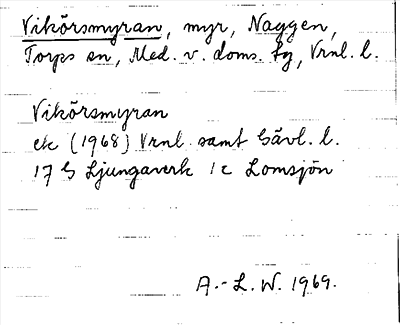 Vikörsmyran, myr, Naggen,
Torps sn, Med. v. doms. fg, Vrnl. l.
Vikörsmyran
ek (1968) Vrnl. samt Gävl. l.
17 G Ljungaverk 1 c Lomsjön
A.-L. W. 1969.